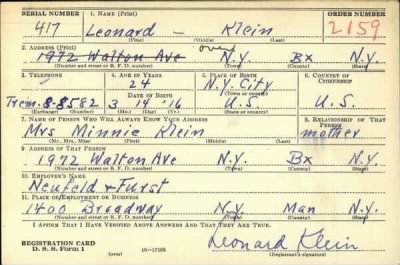 SERIAL NUMBER 1. NAME (Print) ORDER NUMBER
417 Leonard – Klein 2159
(First) (Middle) (Last)
2. ADDRESS (Print) over
1972 Walton Ave N.Y. Bx N.Y.
(Number and street or R. F. D. number) (Town) (County) (State)
3. TELEPHONE 4. AGE IN YEARS 5. PLACE OF BIRTH 6. COUNTRY OF CITIZENSHIP
24 N.Y. City
DATE OF BIRTH (Town or county)
Trem. 8-8582 3 14 '16 U.S. U.S.
(Exchange) (No.) (Mo.) (Day) (Yr.) (State or country)
7. NAME OF PERSON WHO WILL ALWAYS KNOW YOUR ADDRESS 8. RELATIONSHIP OF THAT PERSON
Mrs Minnie Klein mother
(Mr., Mrs., Miss) (First) (Middle) (Last)
9. ADDRESS OF THAT PERSON
1972 Walton Ave N.Y. Bx N.Y.
(Number and street or R. F. D. number) (Town) (County) (State)
10. EMPLOYER'S NAME
Neufeld & Furst
11. PLACE OF EMPLOYMENT OR BUSINESS
1400 Broadway N.Y. Man N.Y.
(Number and street or R. F. D. number) (Town) (County) (State)
I AFFIRM THAT I HAVE VERIFIED ABOVE ANSWERS AND THAT THEY ARE TRUE.
REGISTRATION CARD
D. S. S. Form 1 (over) 16—17105 Leonard Klein
(Registrant's signature)